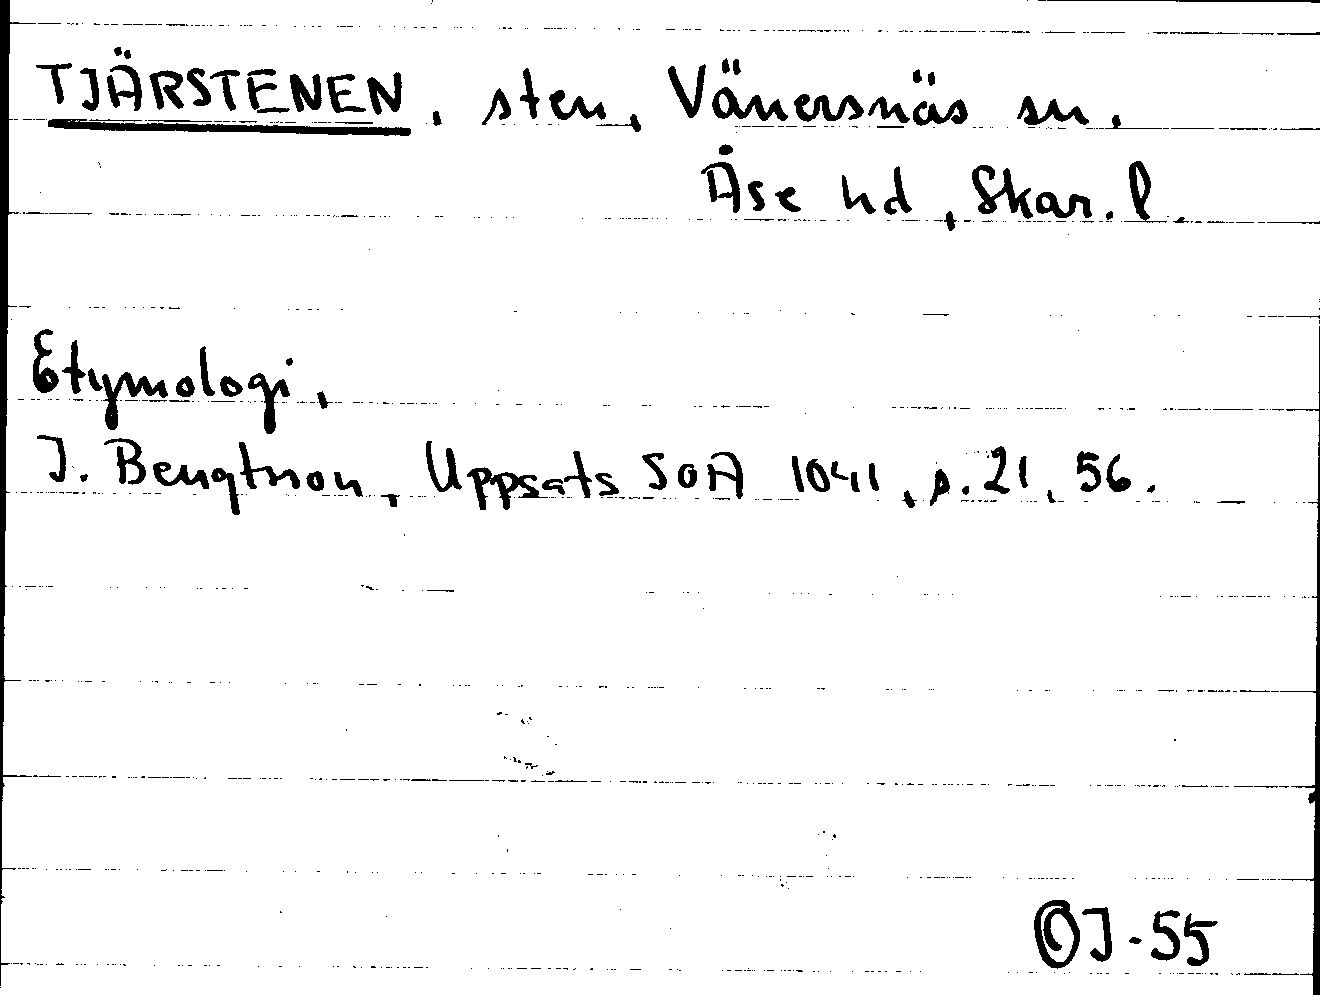 TJÄRSTENEN, sten, Vänersnäs sn.
Åse hd, Skar. l.
Etymologi,
J. Bengtsson, Uppsats SOA 1041, s. 21, 56.
OJ-55